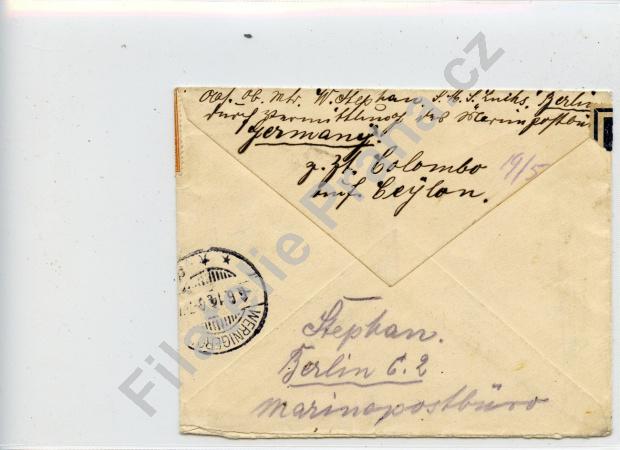 Abs. Ob. Mtr. W. Stephan, S. M. S. Luchs, Berlin
durch Vermittlung des Marinepostbü
Germany.
z. Zt. Colombo
auf Ceylon.
19/5
WERNIGERO
Stephan.
Berlin C. 2
Marinepostbüro
Filatelie Praha.cz